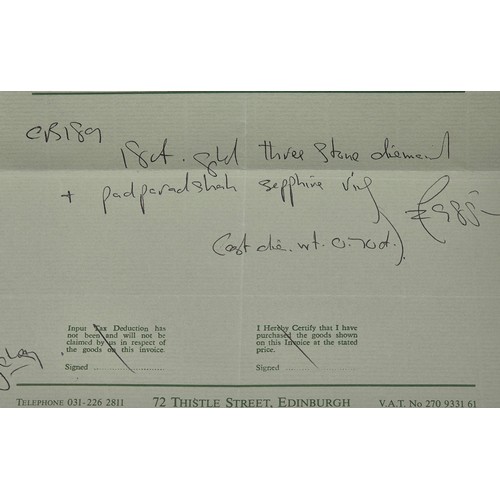 CB189
18ct. gold three stone diamond
+ padparadshah sapphire ring £985-
(est dia. wt. 0.70ct).
Input Tax Deduction has
not been and will not be
claimed by us in respect of
the goods on this invoice.
Signed ....................
I Hereby Certify that I have
purchased the goods shown
on this Invoice at the stated
price.
Signed ....................
TELEPHONE 031-226 2811 72 THISTLE STREET, EDINBURGH V.A.T. No 270 9331 61